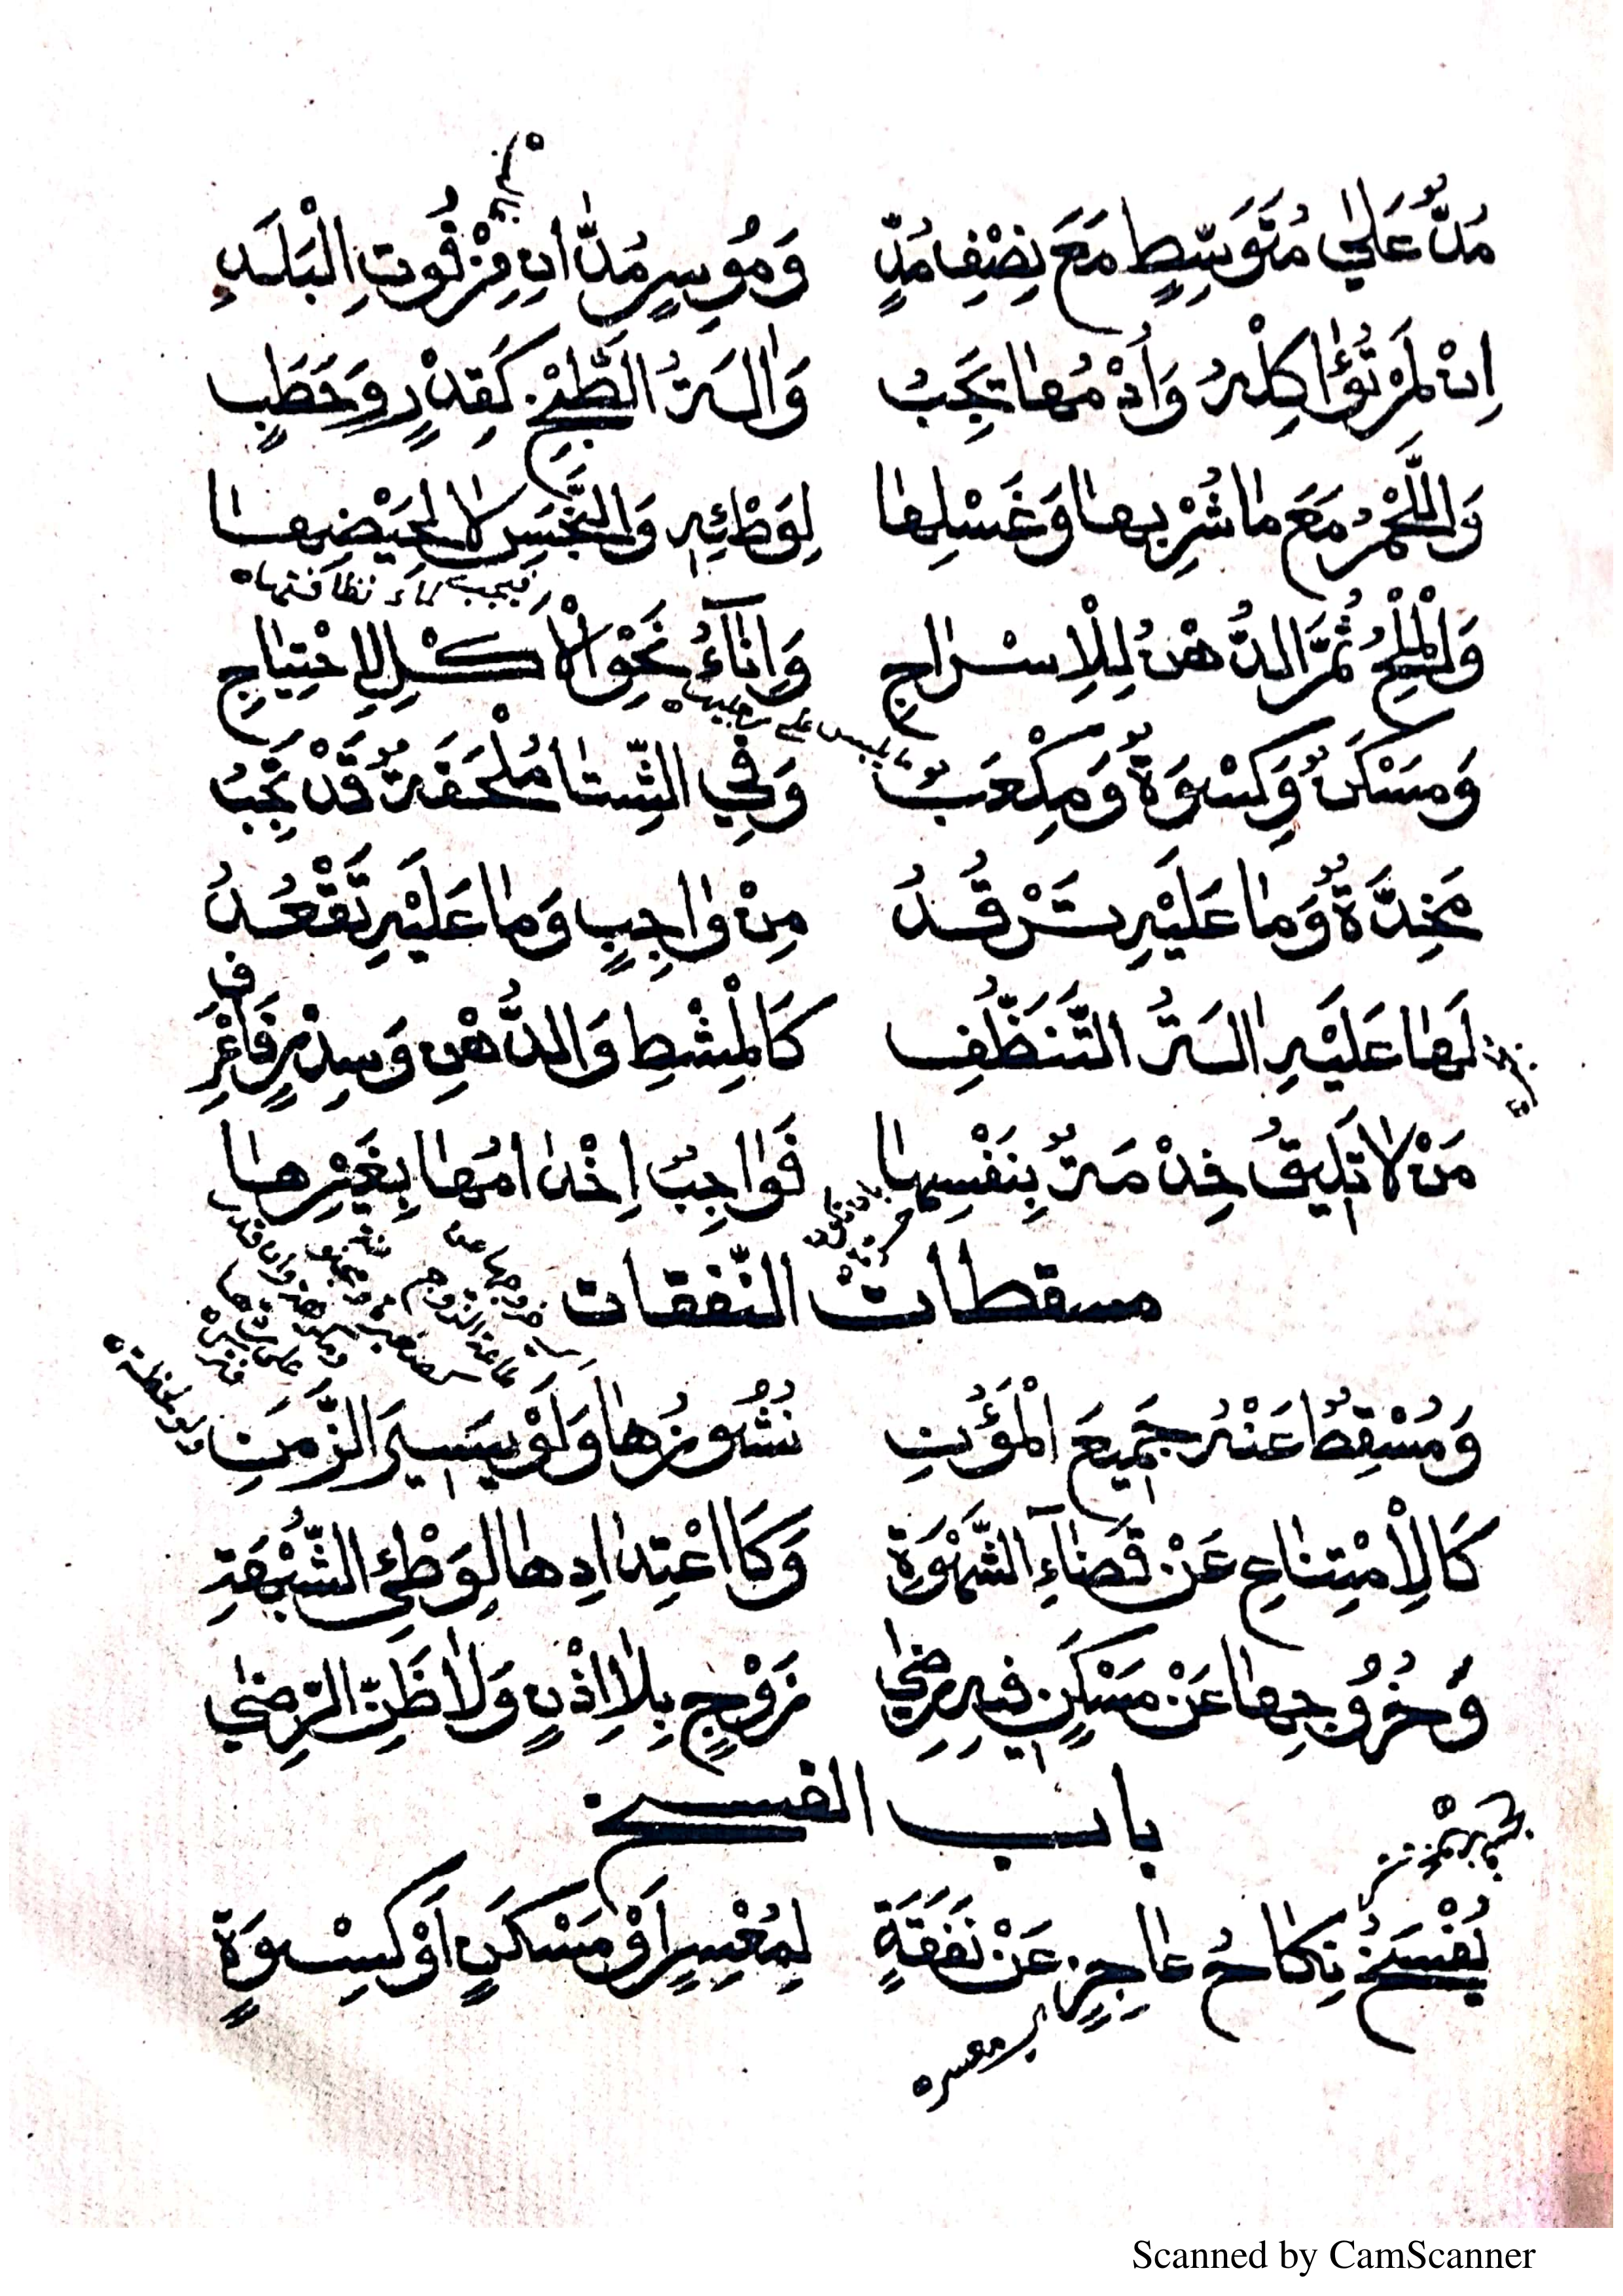 مُدٌّ عَلٰى مُتَوَسِّطٍ مَعَ نِصْفِ مُدٍّ وَمُوسِرٍ مُدَّانِ مِنْ قُوتِ الْبَلَدِ
اِنْ لَمْ تُؤٰاكِلْهُ وَاُدْمُهٰا تَجِبُ وَاٰلَةُ الطَّبْخِ كَقِدْرٍ وَحَطَبٍ
وَاللَّحْمُ مَعَ مٰا شُرْبِهٰا وَغَسْلِهٰا لِوَطْئِهِ وَالنَّجَسِ لٰا لِحَيْضِهٰا
فيجب ماء نظافتها
وَالْمِلْحُ ثُمَّ الدُّهْنُ لِلْاِسْرٰاجِ وَاِنٰآءُ نَحْوِ الْاَكْلِ لِاِحْتِيٰاجِ
يلبس على رجليها
وَمَسْكَنٌ وَكِسْوَةٌ وَمِكْعَبٌ وَفِي الشِّتٰا مُلْحَفَةٌ قَدْ تَجِبُ
مَخِدَّةٌ وَمٰا عَلَيْهِ تَرْقُدُ مِنْ وٰاجِبٍ وَمٰا عَلَيْهِ تَقْعُدُ
لَهٰا عَلَيْهِ اٰلَةُ التَّنَظُّفِ كَالْمِشْطِ وَالدُّهْنِ وَسِدْرٍ فَاغْرِفِ
مَنْ لٰا تَلِيقُ خِدْمَةٌ بِنَفْسِهٰا فَوٰاجِبٌ اِخْدٰامُهٰا بِغَيْرِهٰا
مسقطات النّفقات
وَمُسْقِطٌ عَنْهُ جَمِيعَ الْمُؤَنِ نُشُوزُهٰا وَلَوْ يَسِيرَ الزَّمَنِ
ولو لحظة
كَالْاِمْتِنٰاعِ عَنْ قَضٰآءِ الشَّهْوَةِ وَكَاعْتِدٰادِهٰا لِوَطْئِ الشُّبْهَةِ
وَخُرُوجِهٰا عَنْ مَسْكَنٍ فِيهِ رِضٰى زَوْجٍ بِلٰا اِذْنٍ وَلٰا ظَنِّ الرِّضٰى
باب الفسخ
يُفْسَخُ نِكٰاحُ عٰاجِزٍ عَنْ نَفَقَةٍ لِمُعْسِرٍ اَوْ مَسْكَنٍ اَوْ كِسْوَةٍ
Scanned by CamScanner